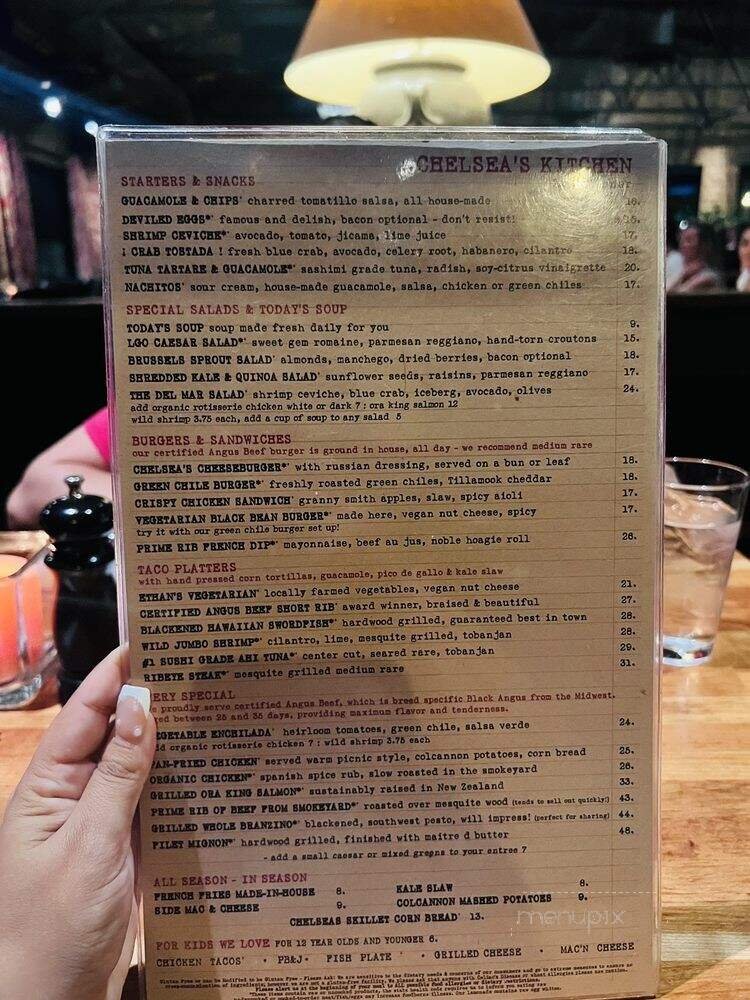 CHELSEA'S KITCHEN
STARTERS & SNACKS
GUACAMOLE & CHIPS' charred tomatillo salsa, all house-made 16.
DEVILED EGGS*' famous and delish, bacon optional - don't resist! 15.
SHRIMP CEVICHE*' avocado, tomato, jicama, lime juice 17.
¡ CRAB TOSTADA ! fresh blue crab, avocado, celery root, habanero, cilantro 18.
TUNA TARTARE & GUACAMOLE*' sashimi grade tuna, radish, soy-citrus vinaigrette 20.
NACHITOS' sour cream, house-made guacamole, salsa, chicken or green chiles 17.
SPECIAL SALADS & TODAY'S SOUP
TODAY'S SOUP soup made fresh daily for you 9.
LGO CAESAR SALAD*' sweet gem romaine, parmesan reggiano, hand-torn croutons 15.
BRUSSELS SPROUT SALAD' almonds, manchego, dried berries, bacon optional 18.
SHREDDED KALE & QUINOA SALAD' sunflower seeds, raisins, parmesan reggiano 17.
THE DEL MAR SALAD' shrimp ceviche, blue crab, iceberg, avocado, olives 24.
add organic rotisserie chicken white or dark 7 : ora king salmon 12
wild shrimp 3.75 each, add a cup of soup to any salad 5
BURGERS & SANDWICHES
our certified Angus Beef burger is ground in house, all day - we recommend medium rare
CHELSEA'S CHEESEBURGER*' with russian dressing, served on a bun or leaf 18.
GREEN CHILE BURGER*' freshly roasted green chiles, Tillamook cheddar 18.
CRISPY CHICKEN SANDWICH' granny smith apples, slaw, spicy aioli 17.
VEGETARIAN BLACK BEAN BURGER*' made here, vegan nut cheese, spicy 17.
try it with our green chile burger set up!
PRIME RIB FRENCH DIP*' mayonnaise, beef au jus, noble hoagie roll 26.
TACO PLATTERS
with hand pressed corn tortillas, guacamole, pico de gallo & kale slaw
ETHAN'S VEGETARIAN' locally farmed vegetables, vegan nut cheese 21.
CERTIFIED ANGUS BEEF SHORT RIB' award winner, braised & beautiful 27.
BLACKENED HAWAIIAN SWORDFISH*' hardwood grilled, guaranteed best in town 28.
WILD JUMBO SHRIMP*' cilantro, lime, mesquite grilled, tobanjan 28.
#1 SUSHI GRADE AHI TUNA*' center cut, seared rare, tobanjan 29.
RIBEYE STEAK*' mesquite grilled medium rare 31.
ERY SPECIAL
e proudly serve certified Angus Beef, which is breed specific Black Angus from the Midwest.
ed between 28 and 35 days, providing maximum flavor and tenderness.
EGETABLE ENCHILADA' heirloom tomatoes, green chile, salsa verde 24.
dd organic rotisserie chicken 7 : wild shrimp 3.75 each
PAN-FRIED CHICKEN' served warm picnic style, colcannon potatoes, corn bread 25.
ORGANIC CHICKEN*' spanish spice rub, slow roasted in the smokeyard 26.
GRILLED ORA KING SALMON*' sustainably raised in New Zealand 33.
PRIME RIB OF BEEF FROM SMOKEYARD*' roasted over mesquite wood (tends to sell out quickly!) 43.
GRILLED WHOLE BRANZINO*' blackened, southwest pesto, will impress! (perfect for sharing) 44.
FILET MIGNON*' hardwood grilled, finished with maitre d butter 48.
- add a small caesar or mixed greens to your entree 7
ALL SEASON - IN SEASON
FRENCH FRIES MADE-IN-HOUSE 8. KALE SLAW 8.
SIDE MAC & CHEESE 9. COLCANNON MASHED POTATOES 9.
CHELSEAS SKILLET CORN BREAD' 13.
menupix
FOR KIDS WE LOVE FOR 12 YEAR OLDS AND YOUNGER 6.
CHICKEN TACOS' • PB&J• FISH PLATE • GRILLED CHEESE • MAC'N CHEESE